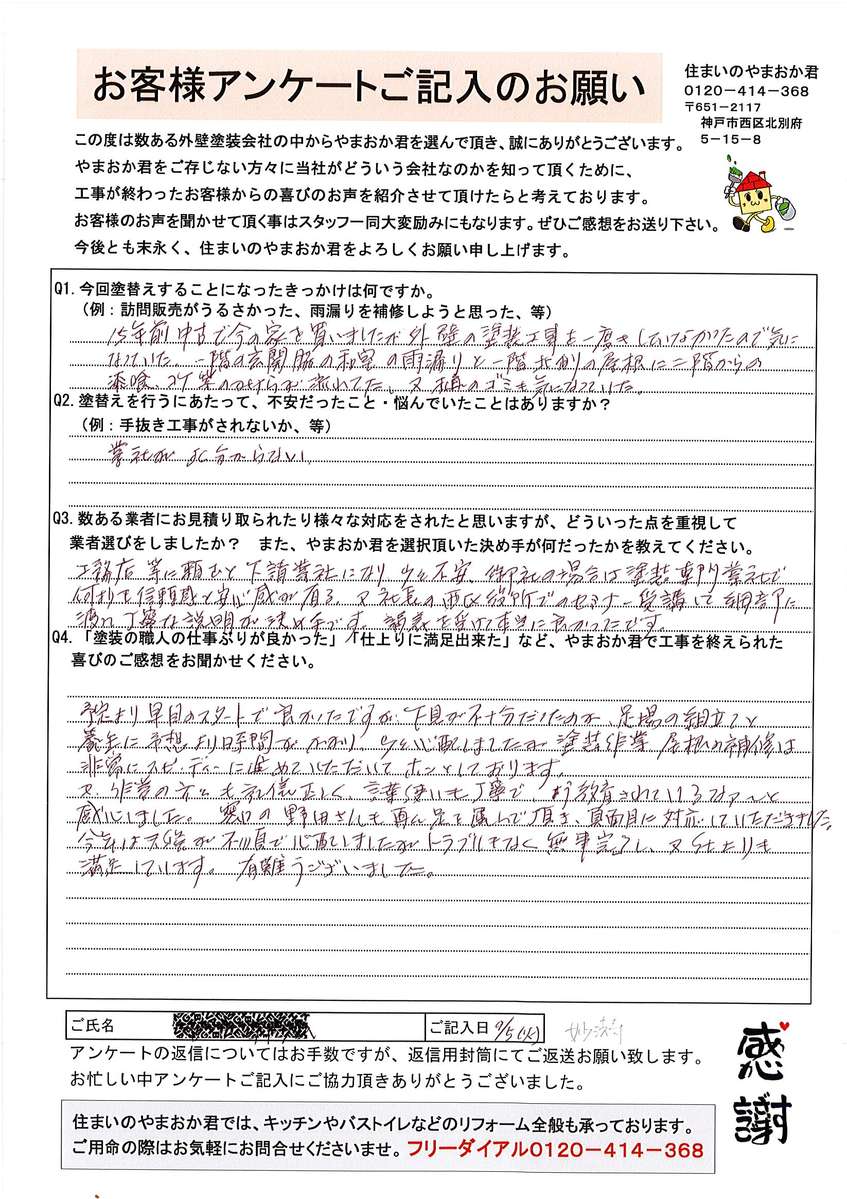 お客様アンケートご記入のお願い
住まいのやまおか君
0120-414-368
〒651-2117
神戸市西区北別府
5-15-8
この度は数ある外壁塗装会社の中からやまおか君を選んで頂き、誠にありがとうございます。
やまおか君をご存じない方々に当社がどういう会社なのかを知って頂くために、
工事が終わったお客様からの喜びのお声を紹介させて頂けたらと考えております。
お客様のお声を聞かせて頂く事はスタッフ一同大変励みにもなります。ぜひご感想をお送り下さい。
今後とも末永く、住まいのやまおか君をよろしくお願い申し上げます。
Q1. 今回塗替えすることになったきっかけは何ですか。
(例:訪問販売がうるさかった、雨漏りを補修しようと思った、等)
15年前中古で今の家を買いましたが外壁の塗装工事を一度もしていなかったので気に
なっていた。一階の玄関脇の和室の雨漏りと一階北側の屋根に二階からの
漆喰、が流れてた。又樋のゴミも気になっていた。
Q2. 塗替えを行うにあたって、不安だったこと・悩んでいたことはありますか?
(例:手抜き工事がされないか、等)
業社がよく分からない
Q3. 数ある業者にお見積り取られたり様々な対応をされたと思いますが、どういった点を重視して
業者選びをしましたか? また、やまおか君を選択頂いた決め手が何だったかを教えてください。
工務店等に頼むと下請業社になり少々不安、御社の場合は塗装専門業社で
何よりも信頼感と安心感が有る。又社長の西区役所でのセミナー受講して細部に
渡り丁寧な説明が決め手です。講義を受けて本当に良かったです。
Q4. 「塗装の職人の仕事ぶりが良かった」「仕上りに満足出来た」など、やまおか君で工事を終えられた
喜びのご感想をお聞かせください。
予定より早目のスタートで良かったですが、下見が不十分だったのか、足場の組立てと
養生に予想より時間がかかり、少々心配しましたが塗装作業、屋根の補修は
非常にスピーディーに進めていただいてホッとしております。
又、作業の方々も礼儀正しく、言葉使いも丁寧でよう教育されているなァ〜と
感心しました。窓口の野田さんも再三足を運んで頂き、真面目に対応していただきました。
今年は天候が不順で心配しましたがトラブルもなく無事完了し、又仕上りも
満足しています。有難うございました。
ご氏名
ご記入日 9/5(火)
アンケートの返信についてはお手数ですが、返信用封筒にてご返送お願い致します。
お忙しい中アンケートご記入にご協力頂きありがとうございました。
感謝
住まいのやまおか君では、キッチンやバストイレなどのリフォーム全般も承っております。
ご用命の際はお気軽にお問合せくださいませ。フリーダイアル0120-414-368